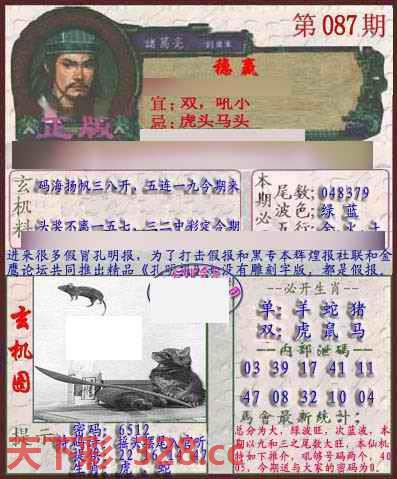 第087期
諸葛亮
德赢
宜:双,吼小
忌:虎头马头
正版
玄机料
码海扬帆三八开,五连一九今期来
头奖不离一五七,三二中彩定今期
本期必
尾数:048379
波色:绿 蓝
五行:金 水 土
进来很多假冒孔明报,为了打击假报和黑专本辉煌报社联和金
鹰论坛共同推出精品《孔明报》没有雕刻字版,都是假报。
玄机图
必开生肖
单:羊 蛇 猪
双:虎 鼠 马
内部泄码
03 39 17 41 11
47 08 32 10 04
馬會最新統計:
总分为大,绿波旺,次蓝波,本
期以九和三之尾数大旺,本仙机
诗如下推介,吼够号码两个,40
05,今期送与大家的密码为0.
提示
密码:6512
天下彩 328.cc